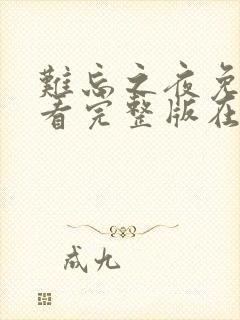 難忘之夜免
看完整版在
成九